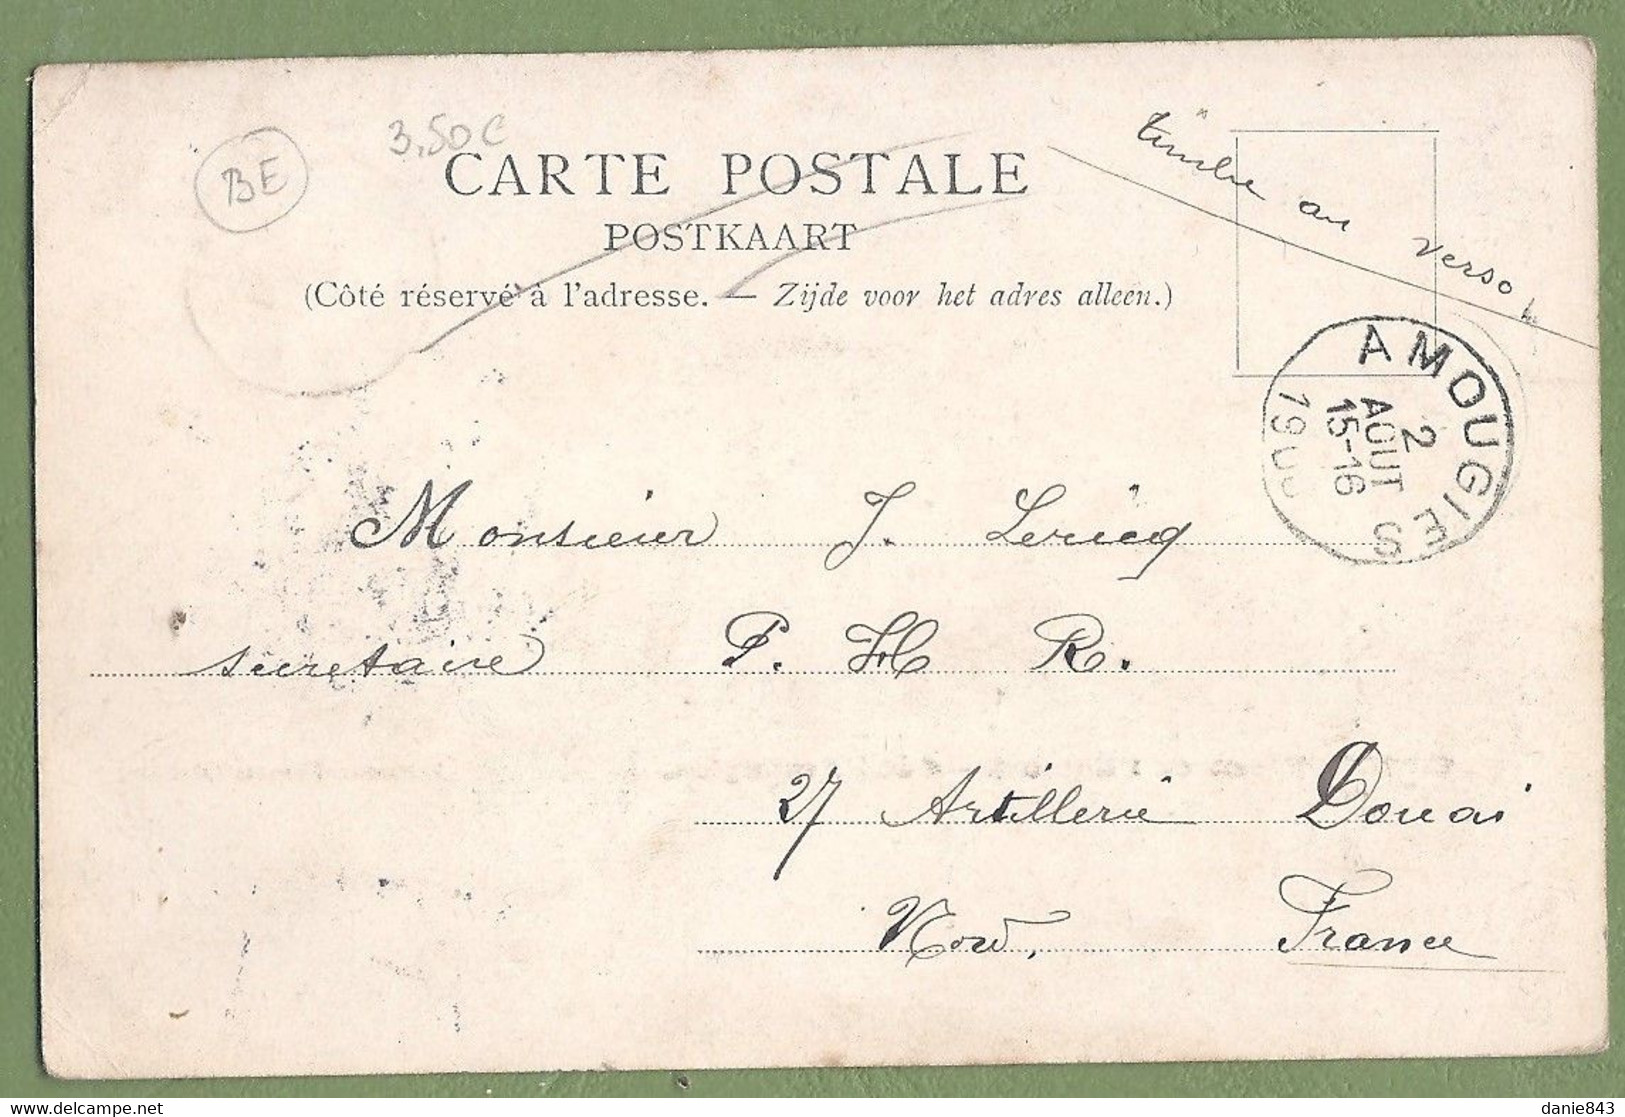 BE
3,50€
CARTE POSTALE
POSTKAART
(Côté réservé à l'adresse. — Zijde voor het adres alleen.)
timbre au verso
AMOUGIES
2
AOUT
15-16
Monsieur J. Lericq
secretaire P. H R.
27 Artillerie Douai
Nord, France
danie843